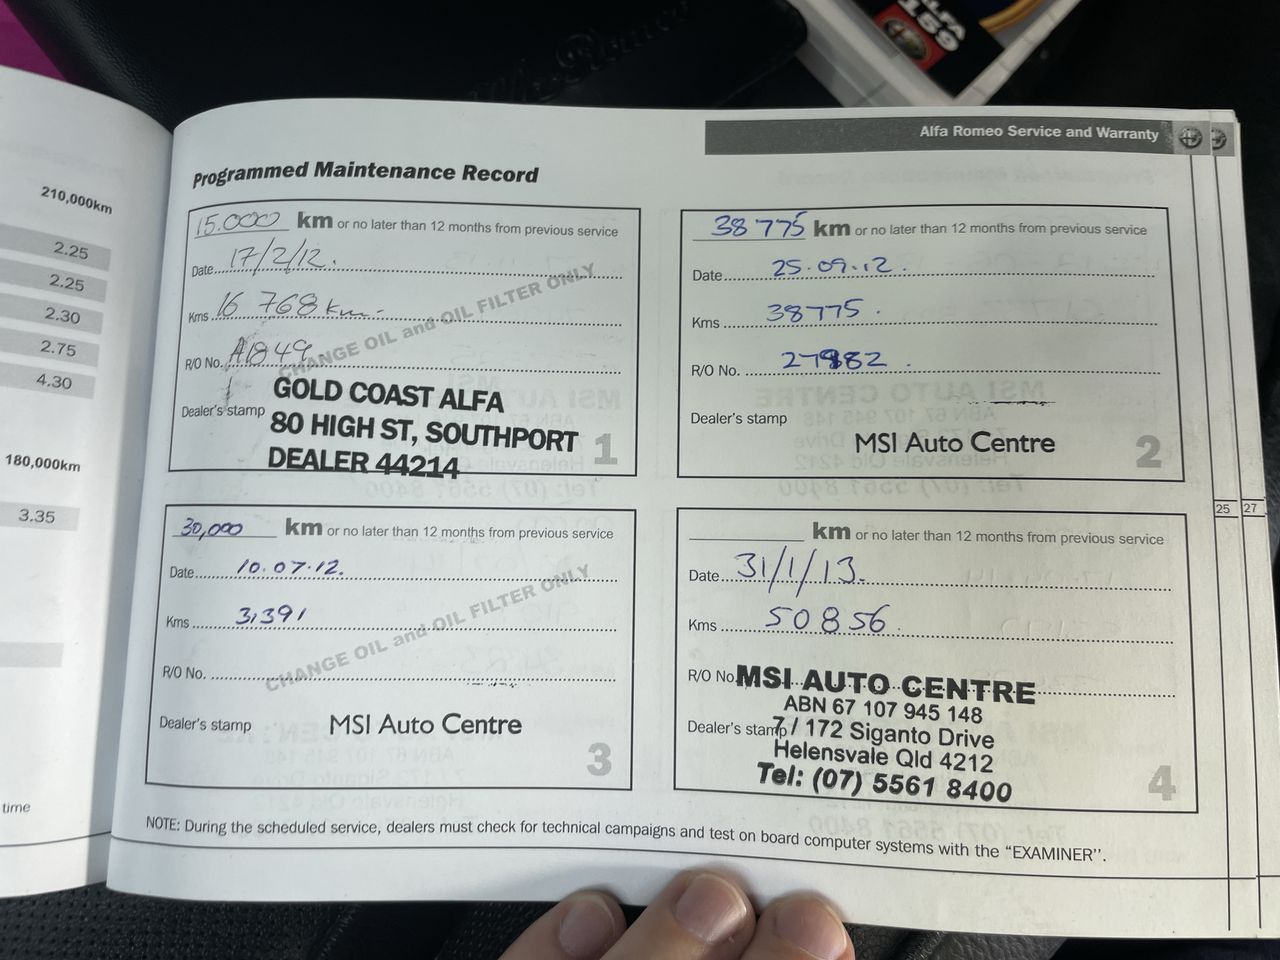 ALFA
159
Alfa Romeo
210,000km
2.25
2.25
2.30
2.75
4.30
180,000km
3.35
time
Alfa Romeo Service and Warranty
Programmed Maintenance Record
15.000 km or no later than 12 months from previous service
Date 17/2/12.
Kms 16 768 km
R/O No. A1849
CHANGE OIL and OIL FILTER ONLY
Dealer's stamp
GOLD COAST ALFA
80 HIGH ST, SOUTHPORT
DEALER 44214
1
38775 km or no later than 12 months from previous service
Date 25.09.12.
Kms 38775.
R/O No. 27982
Dealer's stamp
MSI Auto Centre
2
30,000 km or no later than 12 months from previous service
Date 10.07.12.
Kms 31391
CHANGE OIL and OIL FILTER ONLY
R/O No.
Dealer's stamp
MSI Auto Centre
3
km or no later than 12 months from previous service
Date 31/1/13.
Kms 50856.
R/O No.
Dealer's stamp
MSI AUTO CENTRE
ABN 67 107 945 148
7 / 172 Siganto Drive
Helensvale Qld 4212
Tel: (07) 5561 8400
4
NOTE: During the scheduled service, dealers must check for technical campaigns and test on board computer systems with the "EXAMINER".
25
27